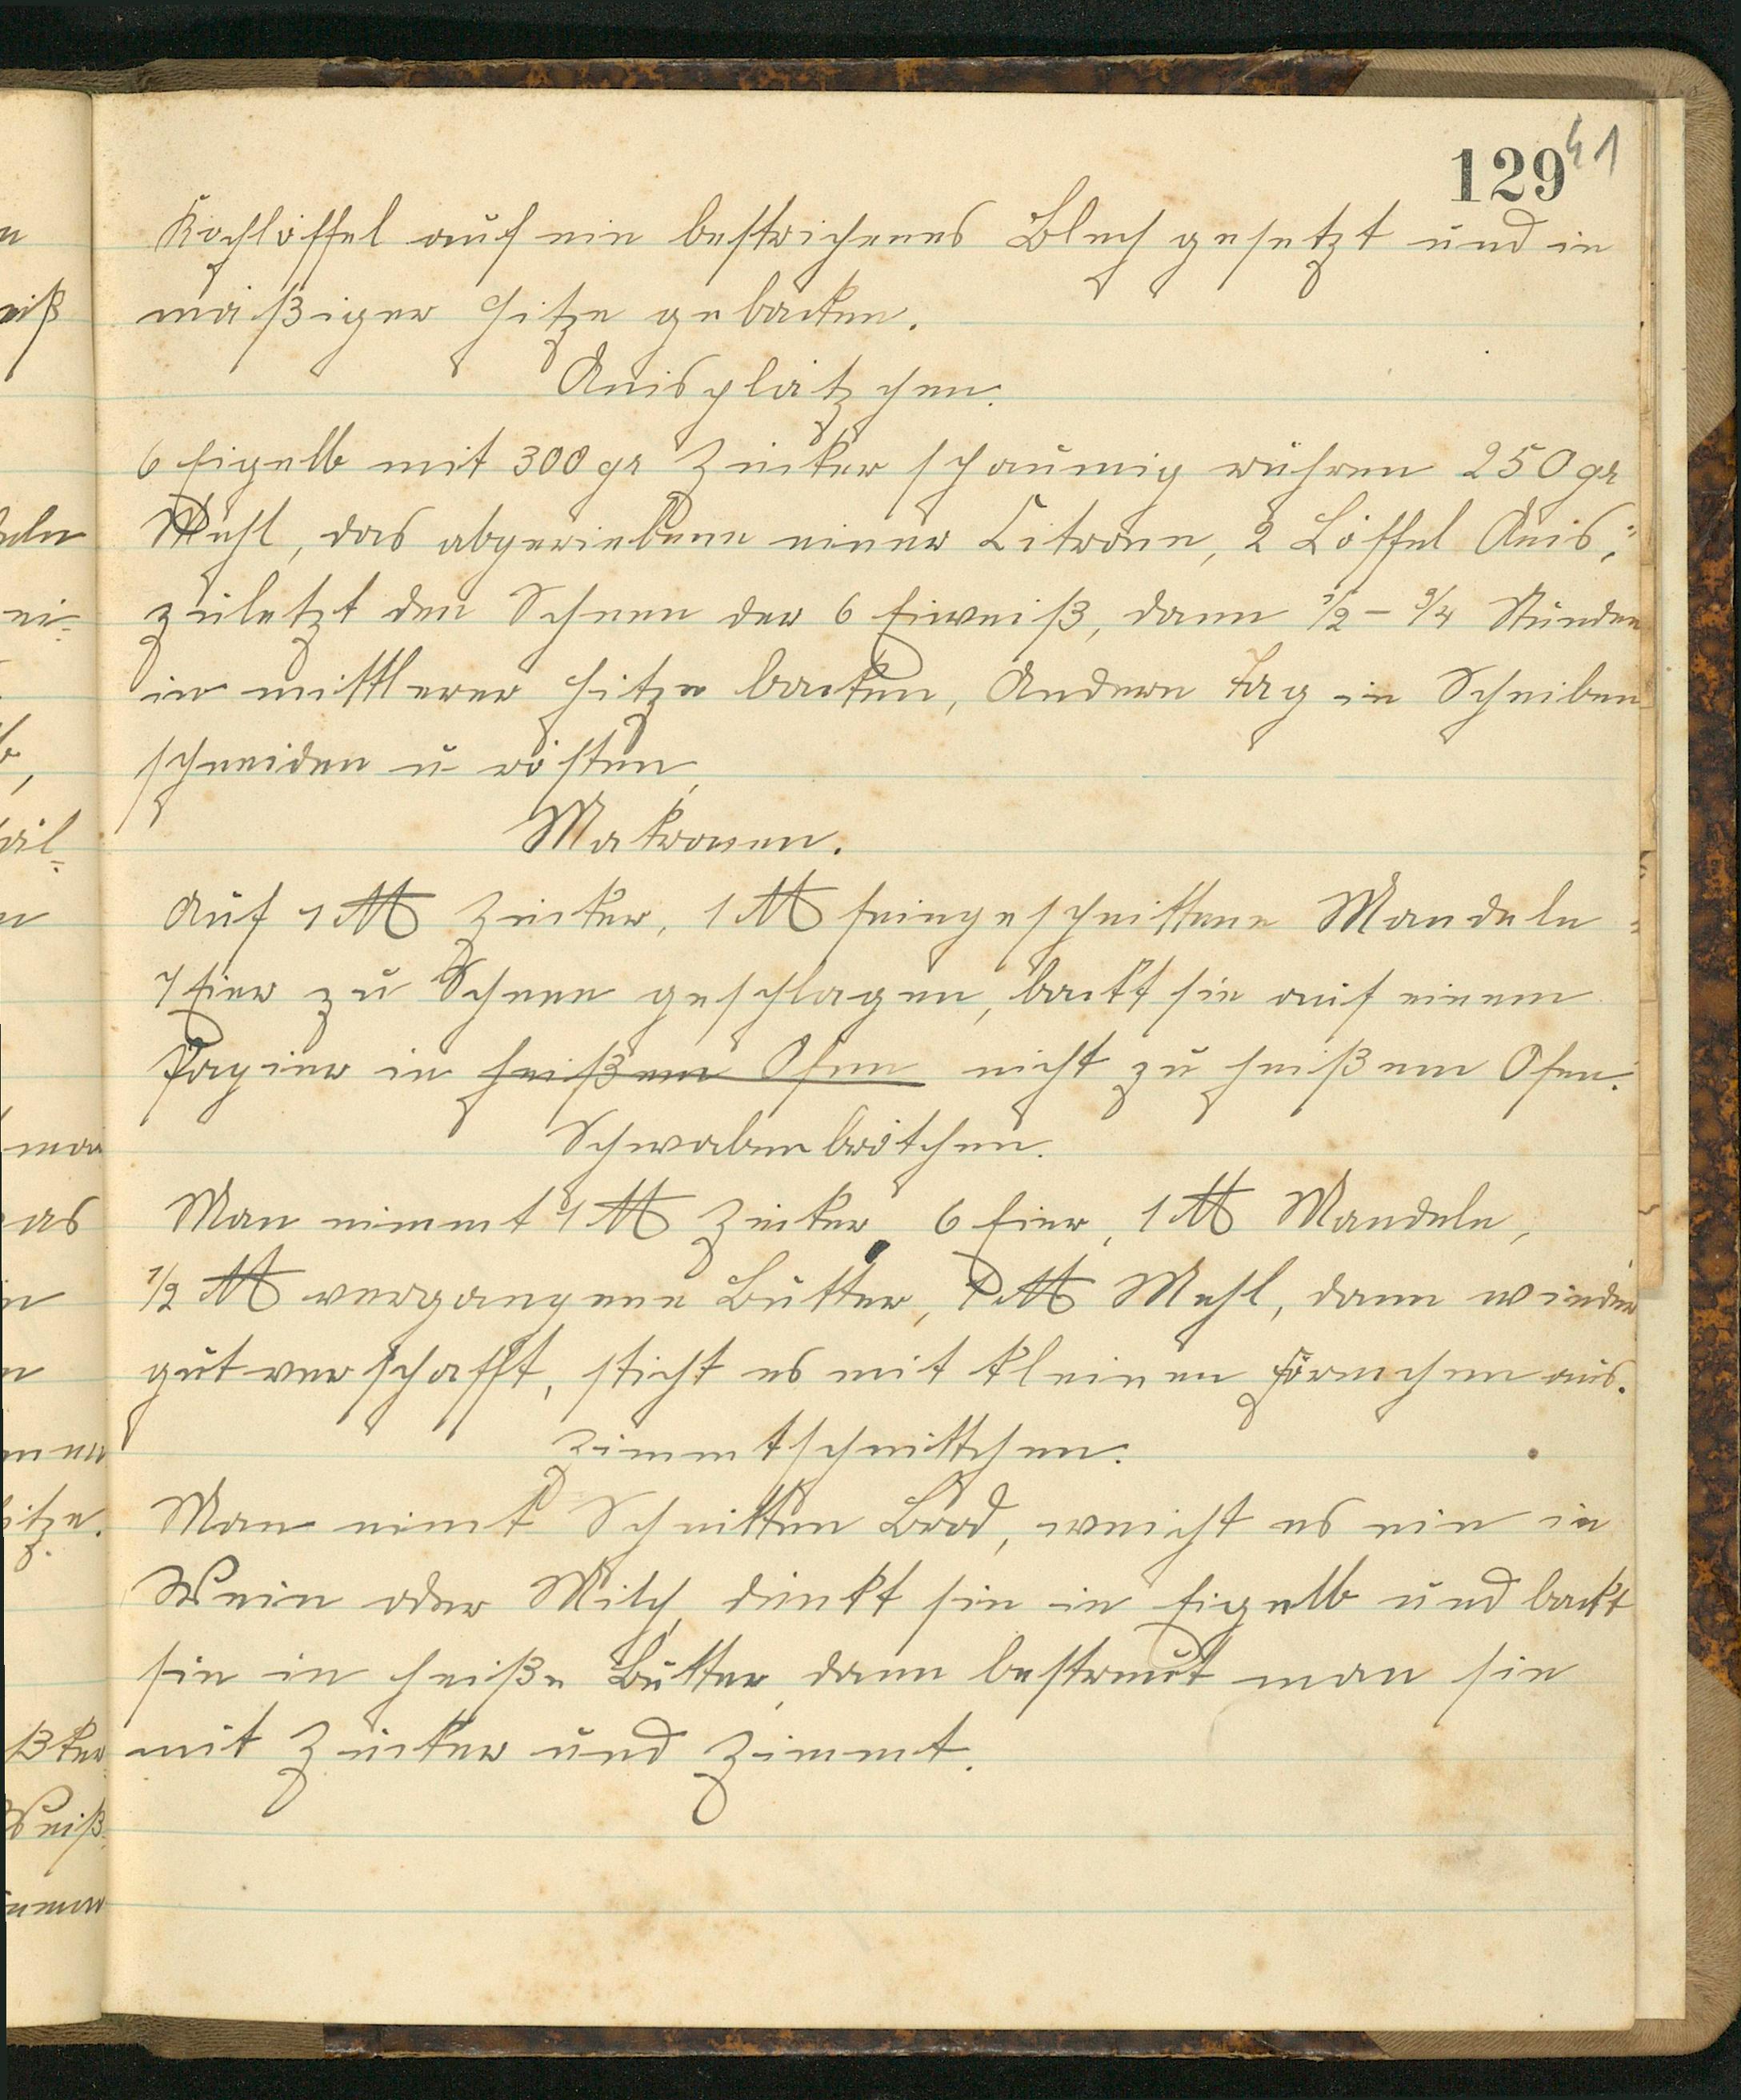 129 41
Kochlöffel auf ein bestrichenes Blech gesetzt und in
mäßiger Hitze gebacken.
Anisplätzchen.
6 Eigelb mit 300 gr Zucker schaumig rühren 250 gr
Mehl, das abgeriebene einer Citrone, 2 Löffel Anis,
zuletzt den Schnee der 6 Eiweiß, dann 1/2 - 3/4 Stunden
in mittlerer Hitze backen, Andern Tag in Scheiben
schneiden u rösten,
Makronen.
Auf 1 ℔ Zucker, 1 ℔ feingeschnittene Mandeln
7 Eier zu Schnee geschlagen, backt sie auf einem
Papier in heißem Ofen nicht zu heißem Ofen.
Schwabenbrötchen.
Man nimmt 1 ℔ Zucker, 6 Eier, 1 ℔ Mandeln,
1/2 ℔ vergangene Butter, 1 ℔ Mehl, dann wieder
gut verschafft, sticht es mit kleinen Förmchen aus.
Zimmtschnittchen.
Man nimt Schnitten Brod, weicht es ein in
Wein oder Milch, dunkt sie in Eigelb und backt
sie in heiße Butter, dann bestreut man sie
mit Zucker und Zimmt.